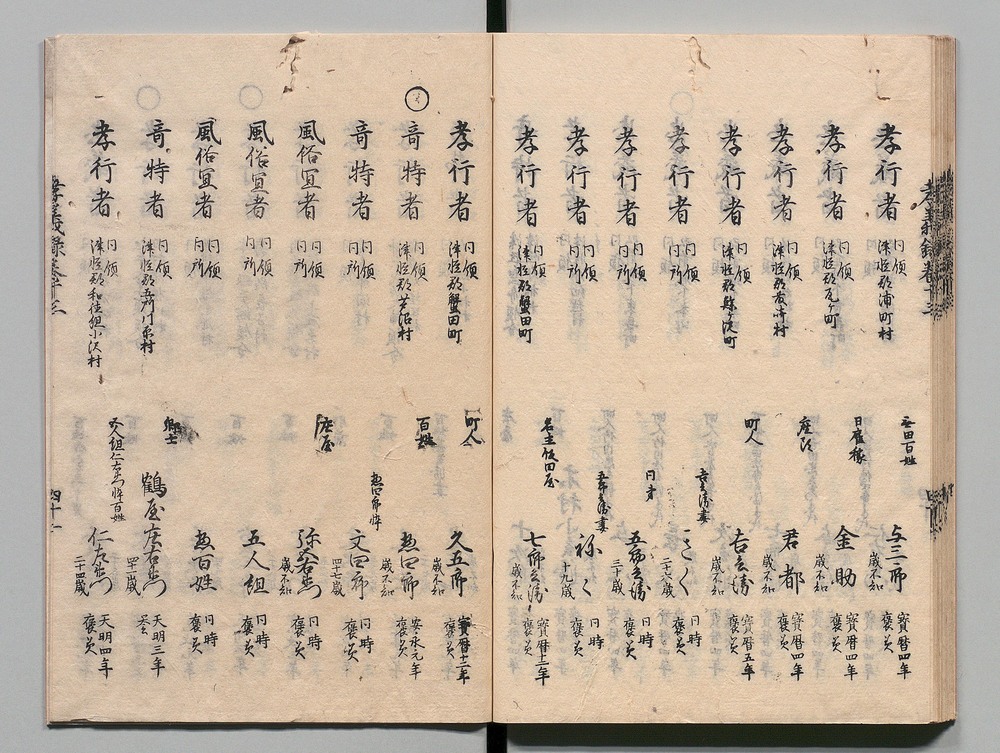 孝行者 同領 津軽郡浦町 無田百姓 与三郎 歳不知 寶暦四年 褒美
孝行者 同領 津軽郡瓦ヶ町 日雇稼 金助 歳不知 寶暦四年 褒美
孝行者 同領 津軽郡 村 座頭 君都 歳不知 寶暦四年 褒美
孝行者 同領 津軽郡鯵ヶ沢町 町人 吉兵衛 歳不知 寶暦五年 褒美
孝行者 同領 同所 吉兵衛妻 さく 二十六歳 同時 褒美
孝行者 同領 同所 同才 五郎兵衛 三十歳 同時 褒美
孝行者 同領 同所 五郎兵衛妻 祢く 十九歳 同時 褒美
孝行者 同領 津軽郡蟹田町 名主飯田屋 七郎兵衛 歳不知 寶暦十二年 褒美
孝義録巻十三
孝行者 同領 津軽郡蟹田町 町人 久五郎 歳不知 寶暦十二年 褒美
奇特者 同領 津軽郡 沼村 百姓 惣四郎 歳不知 安永元年 褒美
奇特者 同領 同所 惣四郎悴 文四郎 四十七歳 同時 褒美
風俗宜者 同領 同所 庄屋 弥右衛門 歳不知 同時 褒美
風俗宜者 同領 同所 五人組 同時 褒美
風俗宜者 同領 同所 惣百姓 同時 褒美
奇特者 同領 津軽郡五所川原村 郷士 鶴屋庄右衛門 四十一歳 天明三年 褒美
孝行者 同領 津軽郡和徳組小沢村 五人組仁右衛門悴百姓 仁左衛門 二十四歳 天明四年 褒美
孝義録巻十三
四十一